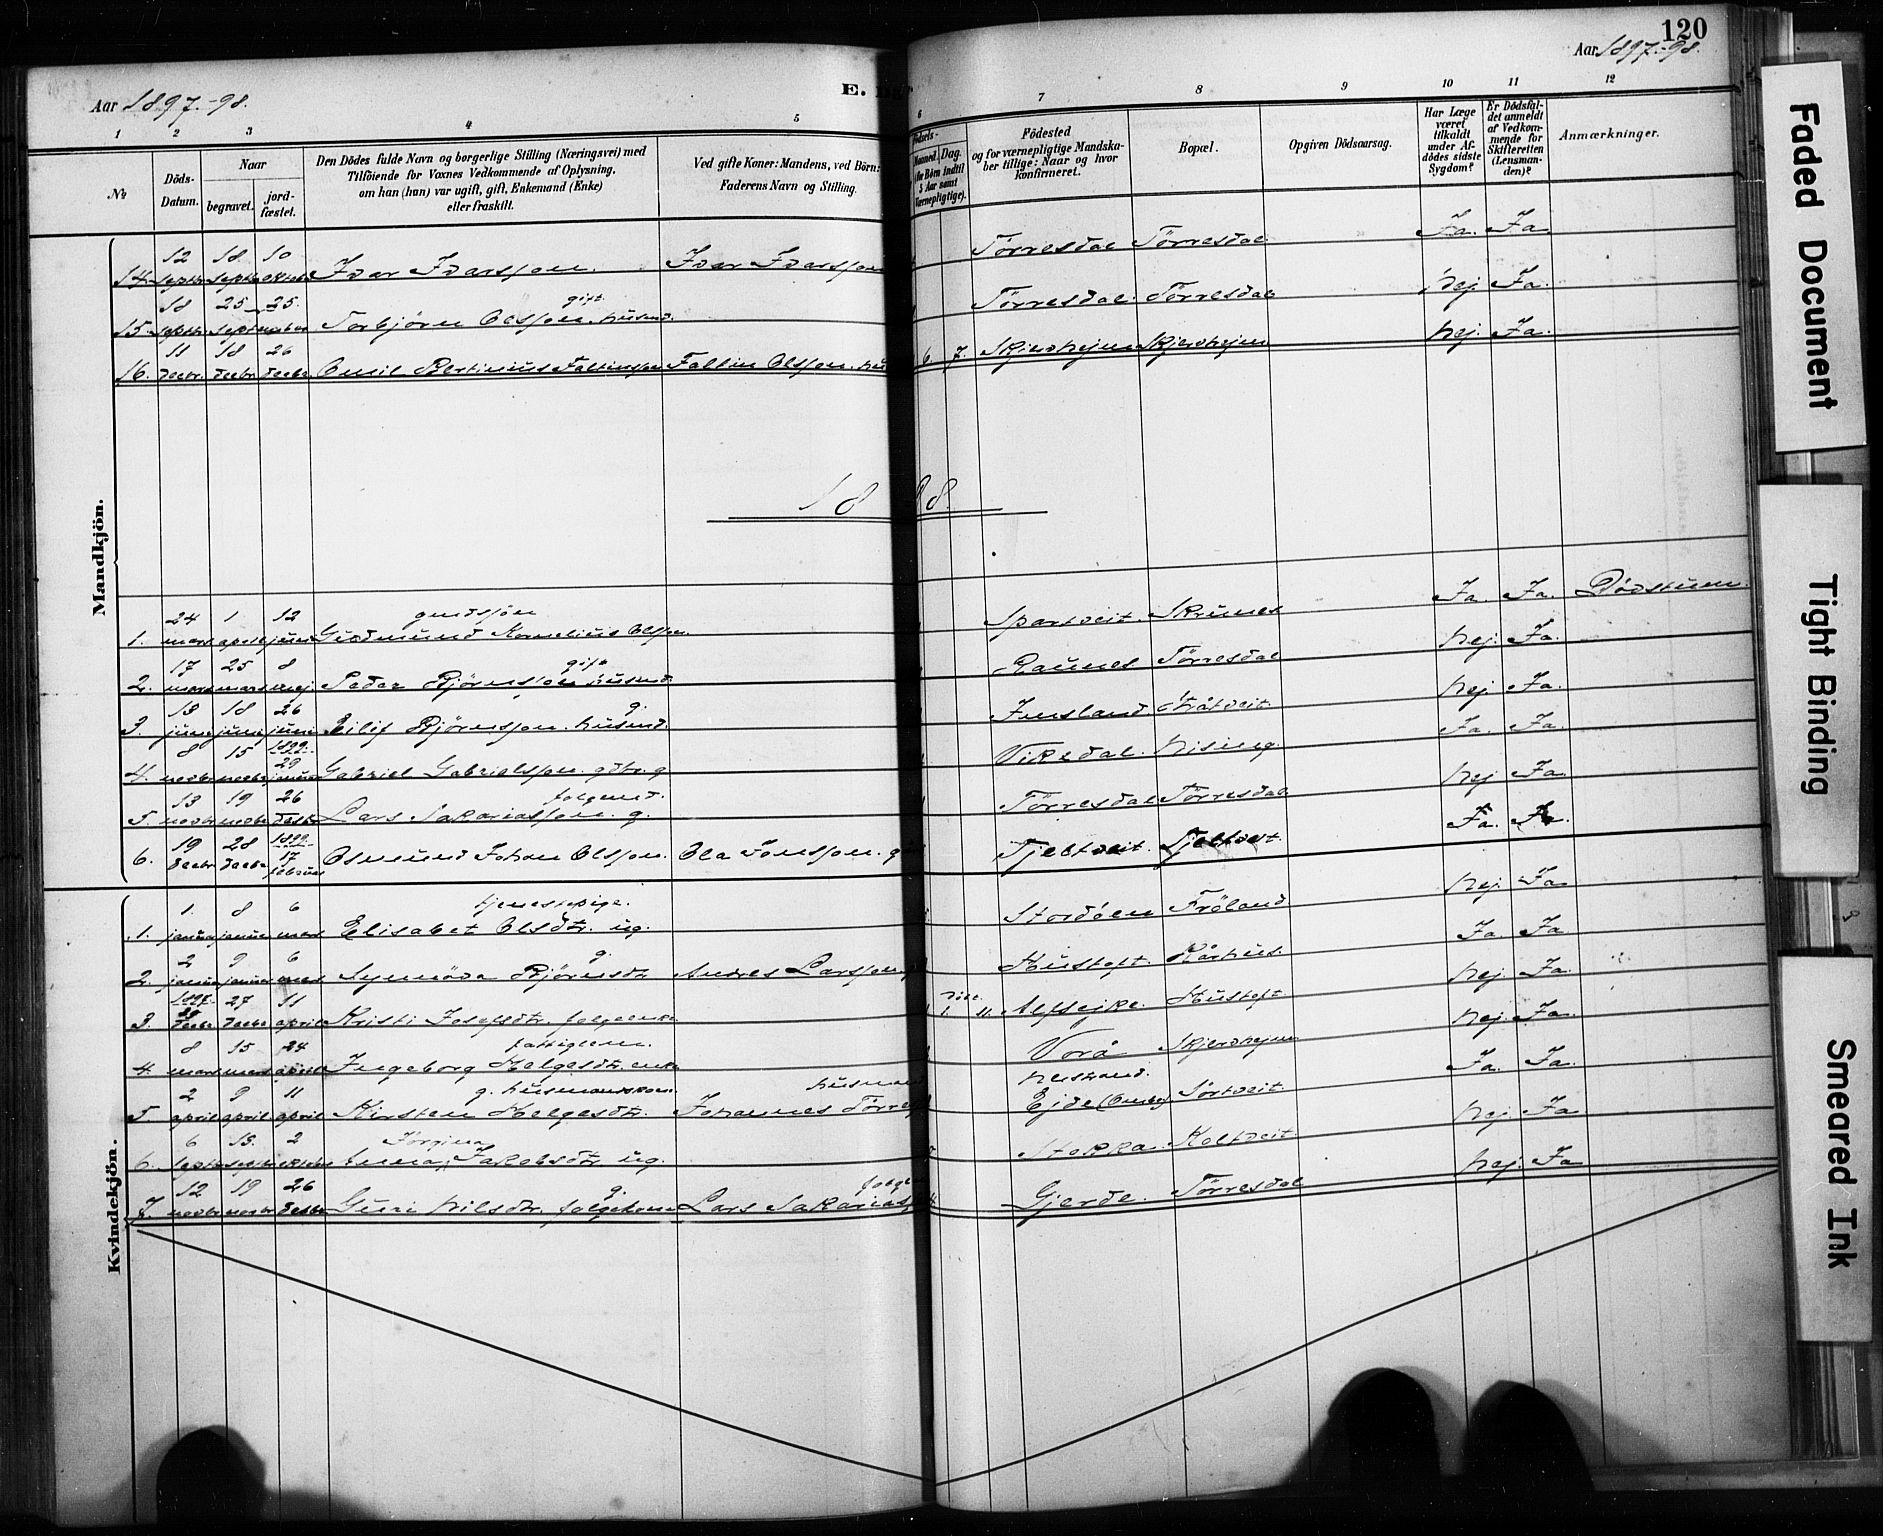 120
Aar 1897-98.
Aar 1897.-98.
E.
1 2 3 4 5 6 7 8 9 10 11 12
No
Döds-
Datum.
Naar
begravet.
jord-
fæstet.
Den Dödes fulde Navn og borgerlige Stilling (Næringsvei) med
Tilföiende for Voxnes Vedkommende af Oplysning,
om han (hun) var ugift, gift, Enkemand (Enke)
eller fraskilt.
Ved gifte Koner: Mandens, ved Börn:
Faderens Navn og Stilling.
Maaned. Dag.
Födested
og for værnepligtige Mandska-
ber tillige: Naar og hvor
konfirmeret.
Bopæl.
Opgiven Dödsaarsag.
Har Læge
været
tilkaldt
under Af-
dödes sidste
Sygdom?
Er Dödsfal-
det anmeldt
af Vedkom-
mende for
Skifteretten
(Lensman-
den)?
Anmærkninger.
Mandkjön.
12 18 10
14. Septbr Septbr Oktobr Ivar Ivarsson. Ivar Ivarsson Törresdal Törresdal Ja. Ja.
18 25 25 gift
15. Septbr September Torbjörn Olsson. husmd. Törresdal. Törresdal Nej Ja.
11 18 26
16. Decbr. Decbr Decbr Emil Bertinius Faltinson Faltin Olsson. 6. 7. Skjerdhejm Skjerdhejm Nej. Ja.
1898.
24 1 12 gutsjön
1. mars april juni Gudmund Kornelius Olsson. Spartveit. Skrunes Ja. Ja. Dödstuen.
17 25 8 gift
2. mars mars mej. Peder Björnsson husmd. Raunes Törresdal Nej. Ja.
13 18 26 g.
3. juni juni juni Eilif Björnsson. husmd. Imsland. Nej Ja.
8 15 1899 29
4. novbr novbr januar Gabriel Gabrielsson. gdbr. g Vikedal. Nising. Ja. Ja.
13 19 26 folgemd.
5. novbr novbr Decbr Lars Sakariasson. g. Törresdal Törresdal Nej Ja.
19 28 1899 17
6. Decbr Decbr februar Osmund Johan Olsson. Ola Tönsson. g Tjeltveit. Tjeltveit. Ja. Ja.
Kvindekjön.
1. 8 6 tjenestepige.
1. januar januar mars Elisabet Olsdtr. ug. Stordöen Fröland Nej. Ja
2 9 6 g.
2. januar januar mars Synnöva Björnsdtr Andres Larsson Hustoft. Kårhus. Ja. Ja.
1897. 27 11
3. Decbr Decbr april Kristi Josefsdtr. folgeenke 1. 11. Alfsejke. Hustoft Nej. Ja.
8 15 24 fattiglem.
4. mars mars april Ingeborg Helgesdtr. enke Vorå Skjerdhejm Nej. Ja.
2 9 11 g. husmandskone. husmand Nerstrand.
5. april april april Kirsten Helgesdtr. Johannes Törres Ejde Sörtveit. Ja. Ja.
6 13. 2 Jörgine
6. Septbr Septbr oktobr Anna Jakobsdtr ug. Stokka Koltveit Nej. Ja
12 19 26 g.
7. novbr novbr Decbr Guri Nilsdtr. folgekone Lars Sakarias Gjerde. Törresdal Nej. Ja
Faded Document
Tight Binding
Smeared Ink